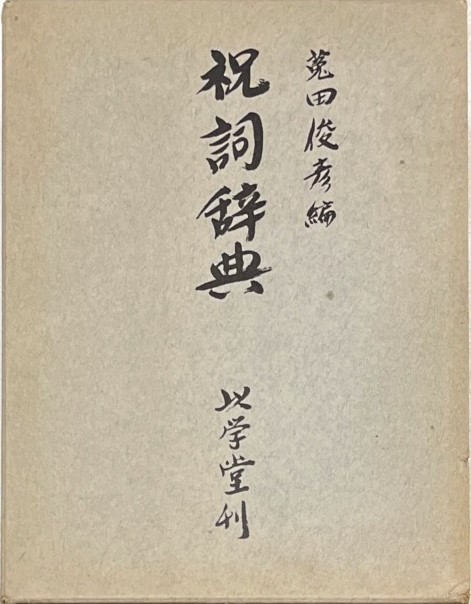 菟田俊彦編
祝詞辞典
此学堂刊